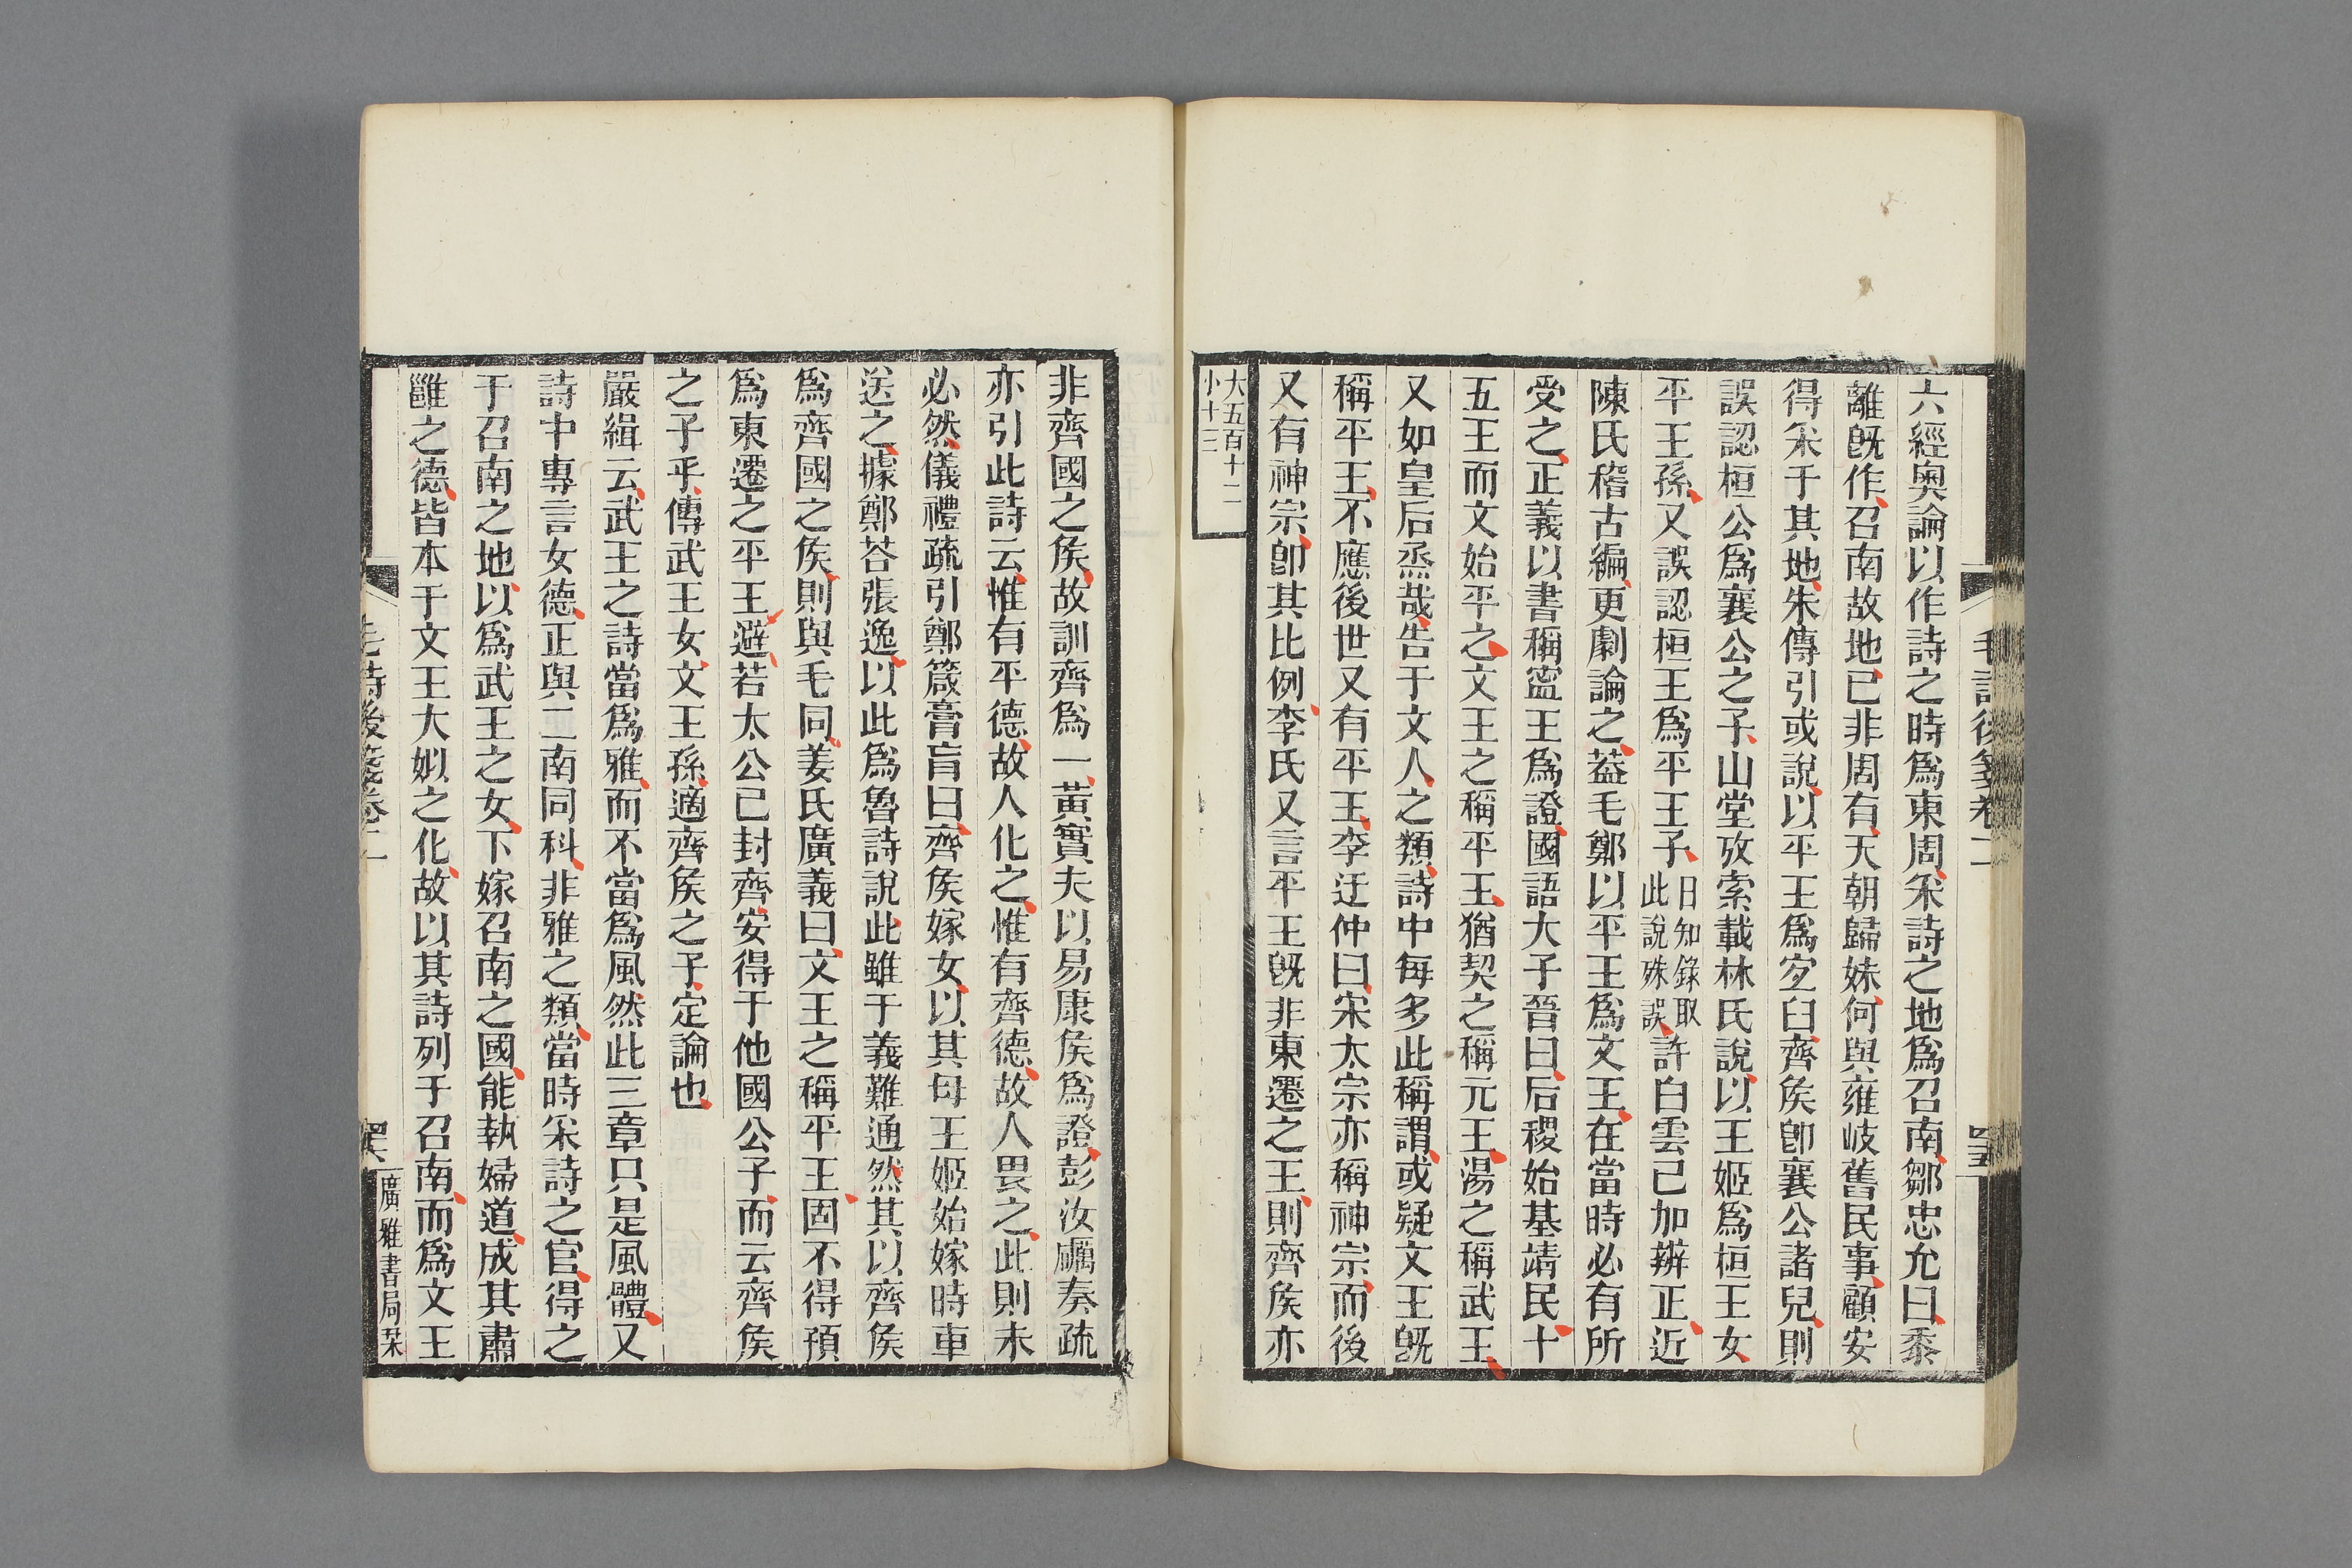 毛詩後箋卷二
罣
六經奧論以作詩之時爲東周采詩之地爲召南鄒忠允曰黍
離旣作召南故地已非周有天朝歸妹何與雍岐舊民事顧安
得采于其地朱傳引或說以平王爲宜臼齊矦卽襄公諸兒則
誤認桓公爲襄公之子山堂攷索載林氏說以王姬爲桓王女
平王孫又誤認桓王爲平王子日知錄取
此說殊誤許白雲已加辨正近
陳氏稽古編更劇論之葢毛鄭以平王爲文王在當時必有所
受之正義以書稱寍王爲證國語大子晉曰后稷始基靖民十
五王而文始平之文王之稱平王猶契之稱元王湯之稱武王
又如皇后烝哉告于文人之類詩中每多此稱謂或疑文王旣
稱平王不應後世又有平王李迂仲曰宋太宗亦稱神宗而後
又有神宗卽其比例李氏又言平王旣非東遷之王則齊矦亦
大五百十二
小十三
非齊國之矦故訓齊爲一黃實夫以易康矦爲證彭汝礪奏疏
亦引此詩云惟有平德故人化之惟有齊德故人畏之此則未
必然儀禮疏引鄭箴膏肓曰齊矦嫁女以其母王姬始嫁時車
送之據鄭荅張逸以此爲魯詩說此雖于義難通然其以齊矦
爲齊國之矦則與毛同姜氏廣義曰文王之稱平王固不得預
爲東遷之平王避若太公已封齊安得于他國公子而云齊矦
之子乎傳武王女文王孫適齊矦之子定論也
嚴緝云武王之詩當爲雅而不當爲風然此三章只是風體又
詩中專言女德正與二南同科非雅之類當時采詩之官得之
于召南之地以爲武王之女下嫁召南之國能執婦道成其肅
雝之德皆本于文王大姒之化故以其詩列于召南而爲文王
毛詩後箋卷二
廣雅書局栞